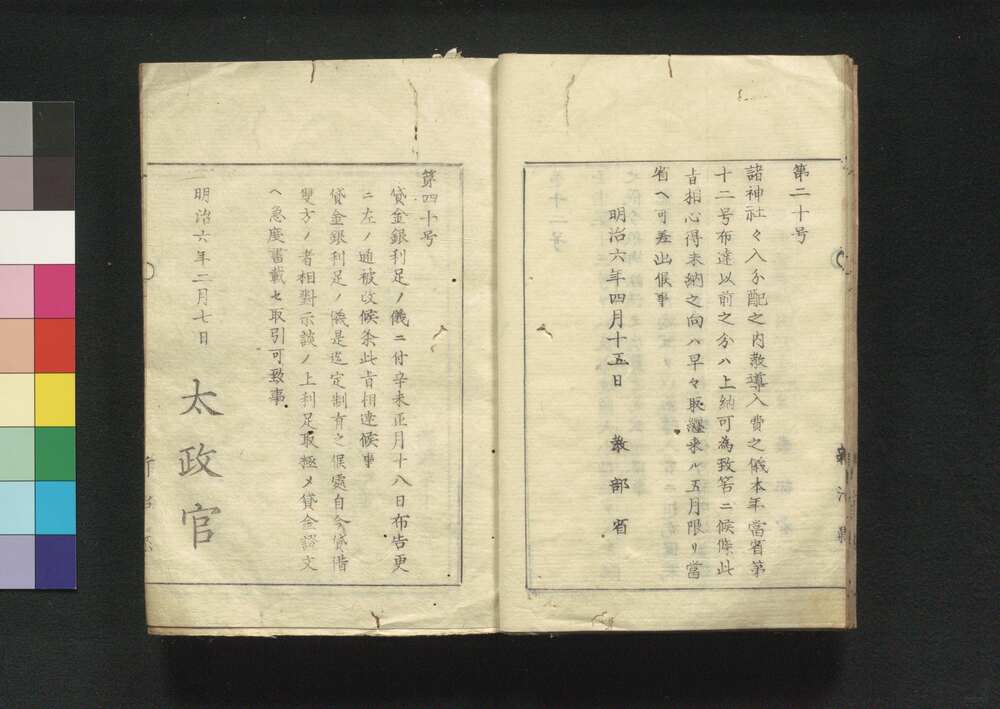 第二十号
諸神社々入分配之内教導入費之儀本年當省第
十二号布達以前之分ハ上納可為致筈ニ候條此
旨相心得未納之向ハ早々取纏来ル五月限リ當
省ヘ可差出候事
明治六年四月十五日　教部省
第四十号
貸金銀利足ノ儀ニ付辛未正月十八日布告更
ニ左ノ通被改候条此旨相達候事
貸金銀利足ノ儀是迄定制有之候處自今貸借
雙方ノ者相對示談ノ上利足取極メ貸金證文
ヘ急度書載セ取引可致事
明治六年二月七日　太政官